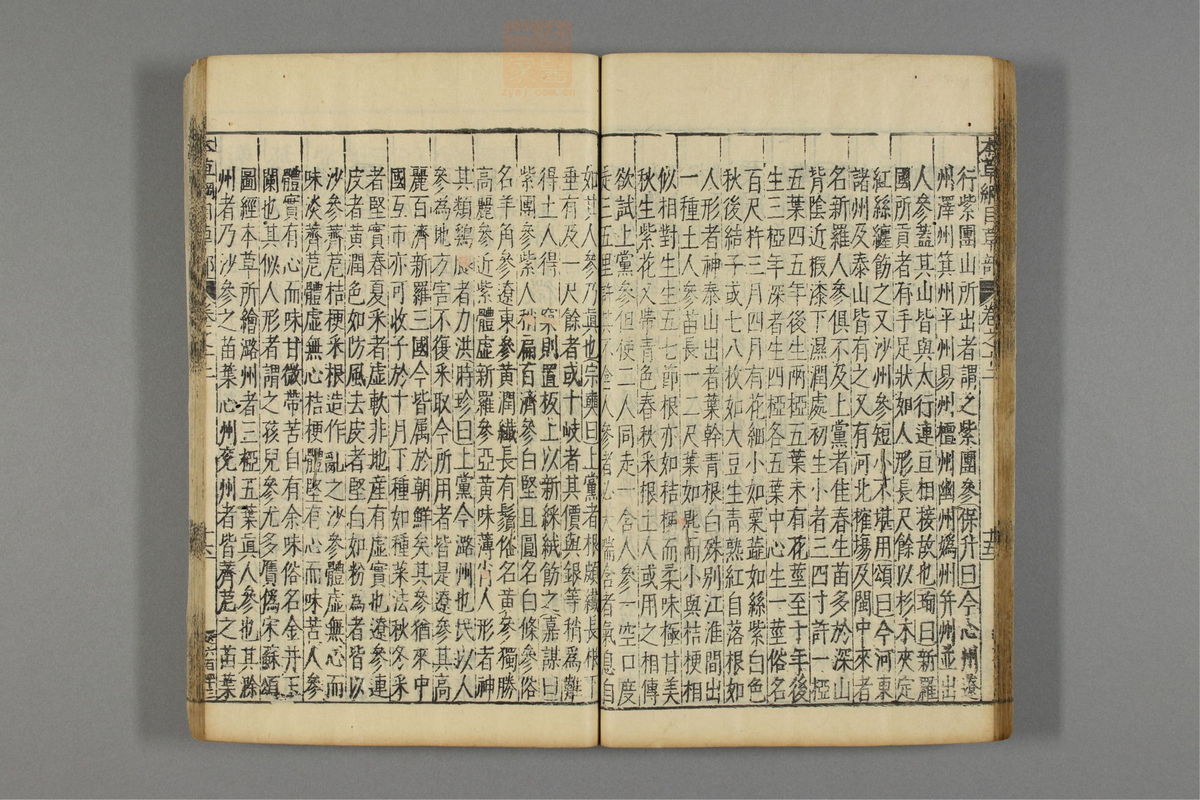 本草綱目草部 卷之十二 十五
行紫團山所出者謂之紫團參保升曰今沁州
州澤州箕州平州易州檀州幽州嬀州并州並出
人參蓋其山皆與太行連亘相接故也珣曰新羅
國所貢者有手足狀如人形長尺餘以杉木夾定
紅絲纏飭之又沙州參短小不堪用頌曰今河東
諸州及泰山皆有之又有河北榷場及閩中來者
名新羅人參俱不及上黨者佳春生苗多於深山
背陰近椵漆下濕潤處初生小者三四寸許一椏
五葉四五年後生兩椏五葉未有花莖至十年後
生三椏年深者生四椏各五葉中心生一莖俗名
百尺杵三月四月有花細小如粟蕊如絲紫白色
秋後結子或七八枚如大豆生青熟紅自落根如
人形者神泰山出者葉幹青根白殊别江淮間出
一種土人參苗長一二尺葉如匙而小與桔梗相
似相對生生五七節根亦如桔梗而柔味極甘美
秋生紫花又帶青色春秋釆根土人或用之相傳
欲試上黨參但使二人同走一含人參一空口度
走三五里許其不含人參者必大喘含者氣息自
如其人參乃眞也宗奭曰上黨者根頗纖長根下
垂有及一尺餘者或十岐者其價與銀等稍爲難
得土人得一窠則置板上以新綵絨飭之嘉謨曰
紫團參紫大稍扁百濟參白堅且圓名白條參俗
名羊角參遼東參黃潤纖長有鬚俗名黃參獨勝
高麗參近紫體虛新羅參亞黃味薄尖人形者神
其類鷄腿者力洪時珍曰上黨今潞州也民以人
參為地方害不復釆取今所用者皆是遼參其高
麗百濟新羅三國今皆属於朝鮮矣其參猶來中
國互市亦可收子於十月下種如種菜法秋冬釆
者堅實春夏釆者虛軟非地産有虛實也遼參連
皮者黃潤色如防風去皮者堅白如粉為者皆以
沙參薺苨桔梗釆根造作亂之沙參體虛無心而
味淡薺苨體虛無心桔梗體堅有心而味苦人參
體實有心而味甘微帶苦自有余味俗名金井玉
闌也其似人形者謂之孩兒參尤多贋僞宋蘇頌
圖經本草所繪潞州者三椏五葉真人參也其滁
州者乃沙參之苗葉沁州兗州者皆薺苨之苗葉
本草綱目草部 卷之十二 十六